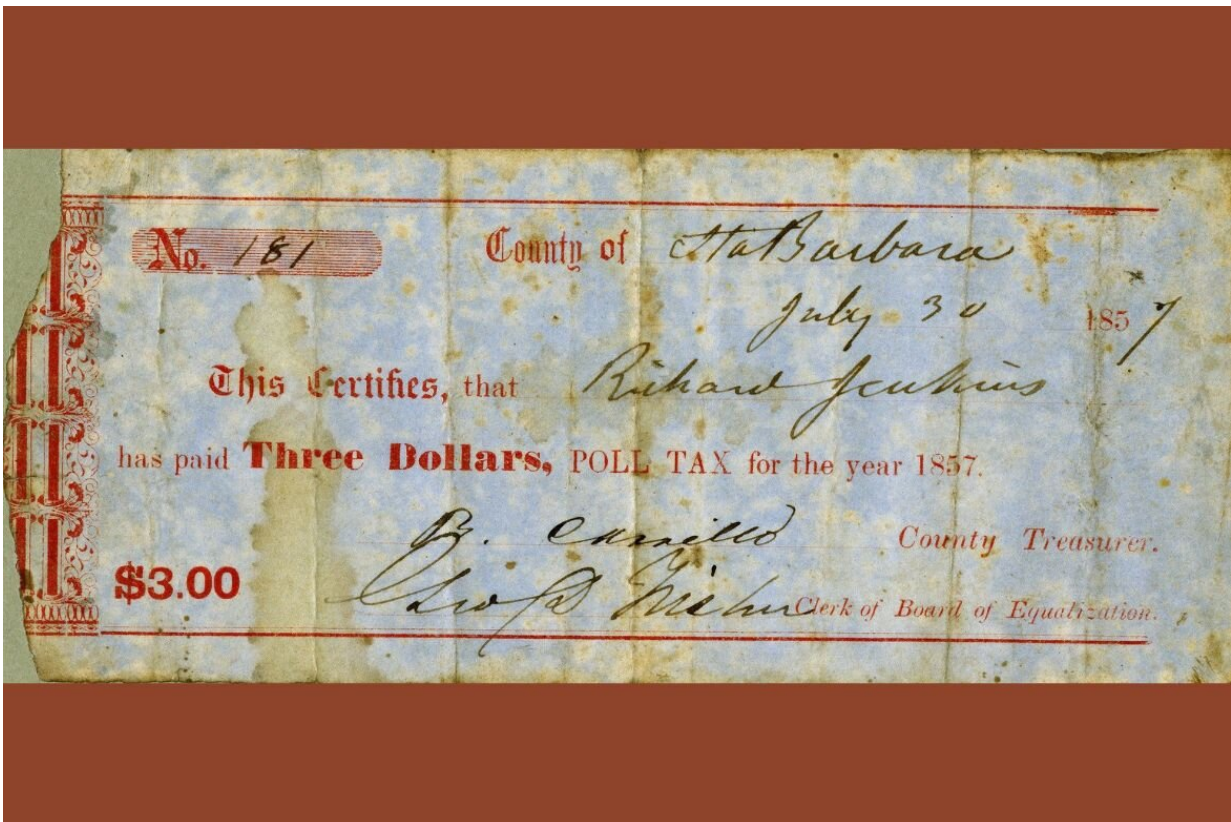 No. 181 County of Sta Barbara
July 30 1857
This Certifies, that Richard Jenkins
has paid Three Dollars, POLL TAX for the year 1857.
R. Carrillo County Treasurer.
$3.00 Clerk of Board of Equalization.